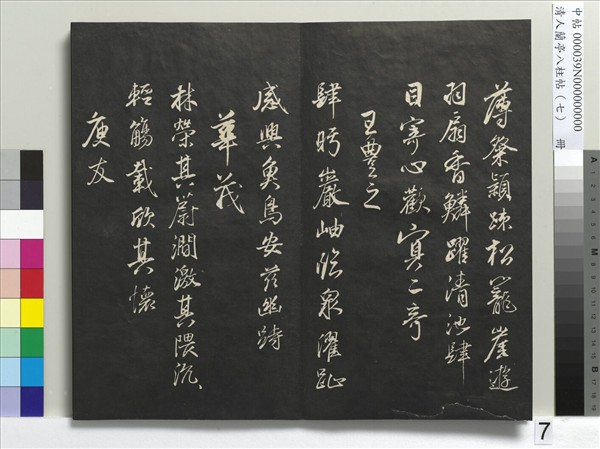 中帖 000039N000000000
清人蘭亭八柱帖（七） 冊
薄粲穎疎松籠崖遊
羽扇霄鱗躍清池肆
目寄心歡冥二奇
王豐之
肆眄巖岫臨泉濯趾
感興魚鳥安茲幽跱
華茂
林榮其蔚澗激其隈汎、
輕觴載欣其懷
庾友
7